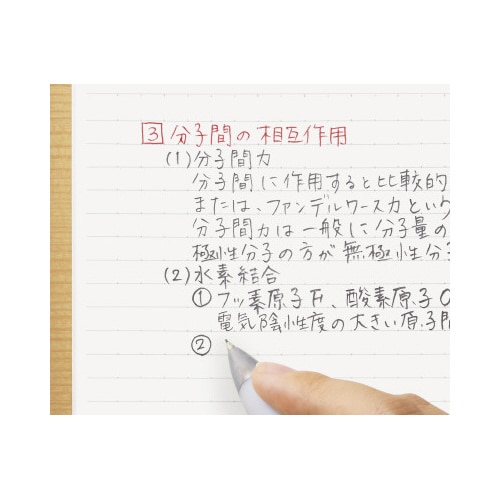 3 分子間の相互作用
(1) 分子間力
分子間に作用すると比較的
または、ファンデルワース力という
分子間力は一般に分子量の
極性分子の方が無極性分子
(2) 水素結合
① フッ素原子F、酸素原子O
電気陰性度の大きい原子間
②